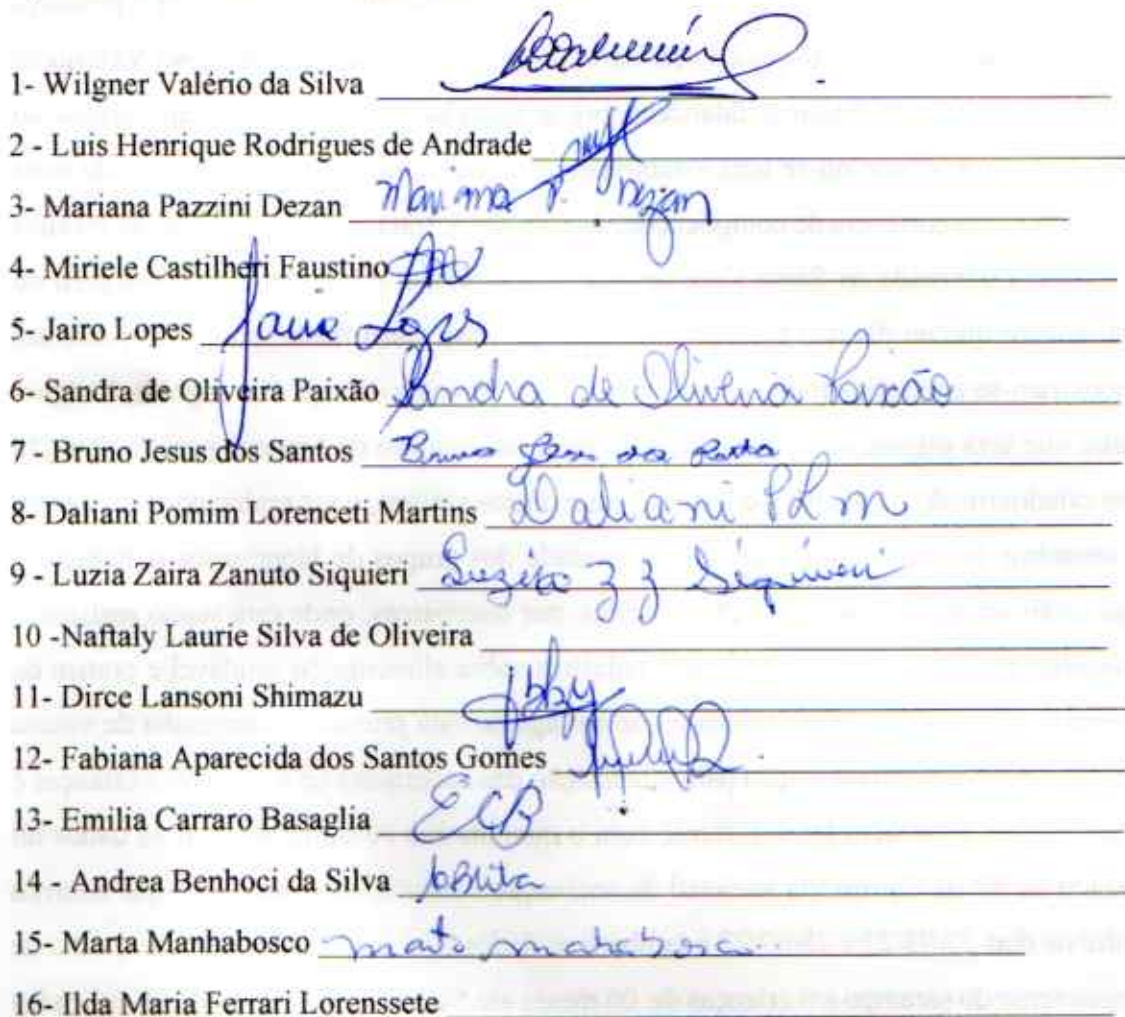 1- Wilgner Valério da Silva
2 - Luis Henrique Rodrigues de Andrade
3- Mariana Pazzini Dezan Mariana P. Dezan
4- Miriele Castilheri Faustino
5- Jairo Lopes Jairo Lopes
6- Sandra de Oliveira Paixão Sandra de Oliveira Paixão
7 - Bruno Jesus dos Santos Bruno Jesus dos Santos
8- Daliani Pomim Lorenceti Martins Daliani PLM
9 - Luzia Zaira Zanuto Siquieri Luzia Z Z Siquieri
10 -Naftaly Laurie Silva de Oliveira
11- Dirce Lansoni Shimazu
12- Fabiana Aparecida dos Santos Gomes
13- Emilia Carraro Basaglia ECB
14 - Andrea Benhoci da Silva
15- Marta Manhabosco Marta Manhabosco
16- Ilda Maria Ferrari Lorenssete